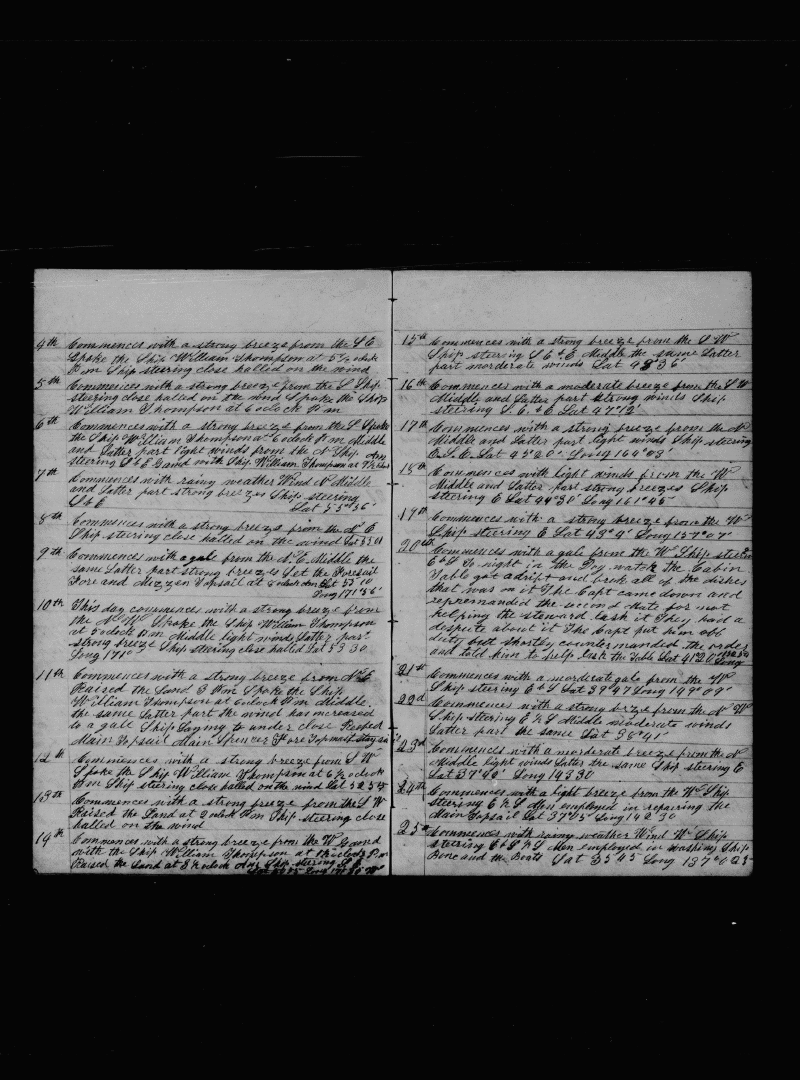 4th Commences with a strong breeze from the S E
Spoke the Ship William Thompson at 5 ½ oclock
P.m Ship steering close halled on the wind
5th Commences with a strong breeze from the S Ship
steering close halled on the wind Spoke the Ship
William Thompson at 6 oclock P.m
6th Commences with a strong breeze from the S Spoke
the Ship William Thompson at 6 oclock P.m Middle
and Latter part light winds from the N Ship
steering S b E Gamd with Ship William Thompson at
7th Commences with rainy weather Wind N Middle
and Latter part strong breezes Ship steering
S b E Lat 55°56'
8th Commences with a strong breeze from the N E
Ship steering close halled on the wind Lat
9th Commences with a gale from the N.E. Middle the
same Latter part strong breezes Set the Foresail
Fore and Mezzen Topsail at 8 oclock Lat 53°10
Long 171°56'
10th This day commences with a strong breeze from
the N W Spoke the Ship William Thompson
at 5 oclock P.m Middle light winds Latter part
strong breeze Ship steering close halled Lat 53 30
Long 171°
11th Commences with a strong breeze from N E
Raised the Land 3 P.m Spoke the Ship
William Thompson at 6 oclock P.m Middle
the same Latter part the wind has increased
to a gale Ship Laying to under close Reefed
Main Topsail Main Spencer Fore Topmast Staysail
12th Commences with a strong breeze from S W
Spoke the Ship William Thompson at 6 ½ oclock
P.m Ship steering close halled on the wind Lat 52 54
13th Commences with a strong breeze from the S W
Raised the Land at 2 oclock P.m Ship steering close
halled on the wind
14th Commences with a strong breeze from the W Gamd
with the Ship William Thompson at oclock P.m
Raised the Land at 8 ½ oclock Ship steering
Long
15th Commences with a strong breeze from the S W
Ship steering S E b E Middle the same Latter
part morderate winds Lat 48°56'
16th Commences with a moderate breeze from the S W
Middle and Latter part strong winds Ship
steering S. E. b E Lat 47°12'
17th Commences with a strong breeze from the N
Middle and Latter part light winds Ship steering
E. S. E. Lat 45°20' Long 164°03'
18th Commences with light winds from the W
Middle and Latter part strong breezes Ship
steering E Lat 44°30' Long 161°45'
19th Commences with a strong breeze from the W
Ship steering E Lat 43°4' Long 157°07'
20th Commences with a gale from the W Ship steering
E b S To night in the Dog watch the Cabin
Table got adrift and brok all of the dishes
that was on it The Capt came down and
repremanded the second Mate for not
helping the steward lash it They had a
dispute about it The Capt put him obb
duty but shortly countermanded the order
and told him to help lash the Table Lat 41°20' Long
21st Commences with a morderate gale from the W
Ship steering E b S Lat 39°47 Long 149°09'
22d Commences with a strong brze from the N W
Ship steering E ½ S Middle moderate winds
Latter part the same Lat 38°41'
23d Commences with a morderate breeze from the N
Middle light winds Latter the same Ship steering E
Lat 37°40' Long 143 30
24th Commences with a light breeze from the W Ship
steering E ½ S Men employed in repairing the
Main Topsail Lat 37°05 Long 142°30
25th Commences with rainy weather Wind W Ship
steering E b S ½ S Men employed in washing Ship
Bone and the Boats Lat 35 45 Long 137°0